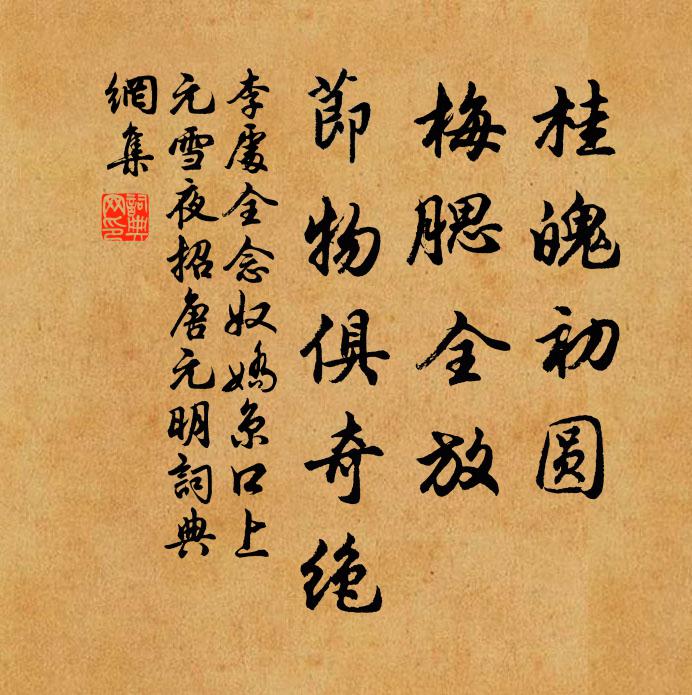 桂魄初圆
梅腮全放
節物俱奇絶
李處全念奴嬌京口上
元雪夜招唐元明詞典
網集
詞典網印